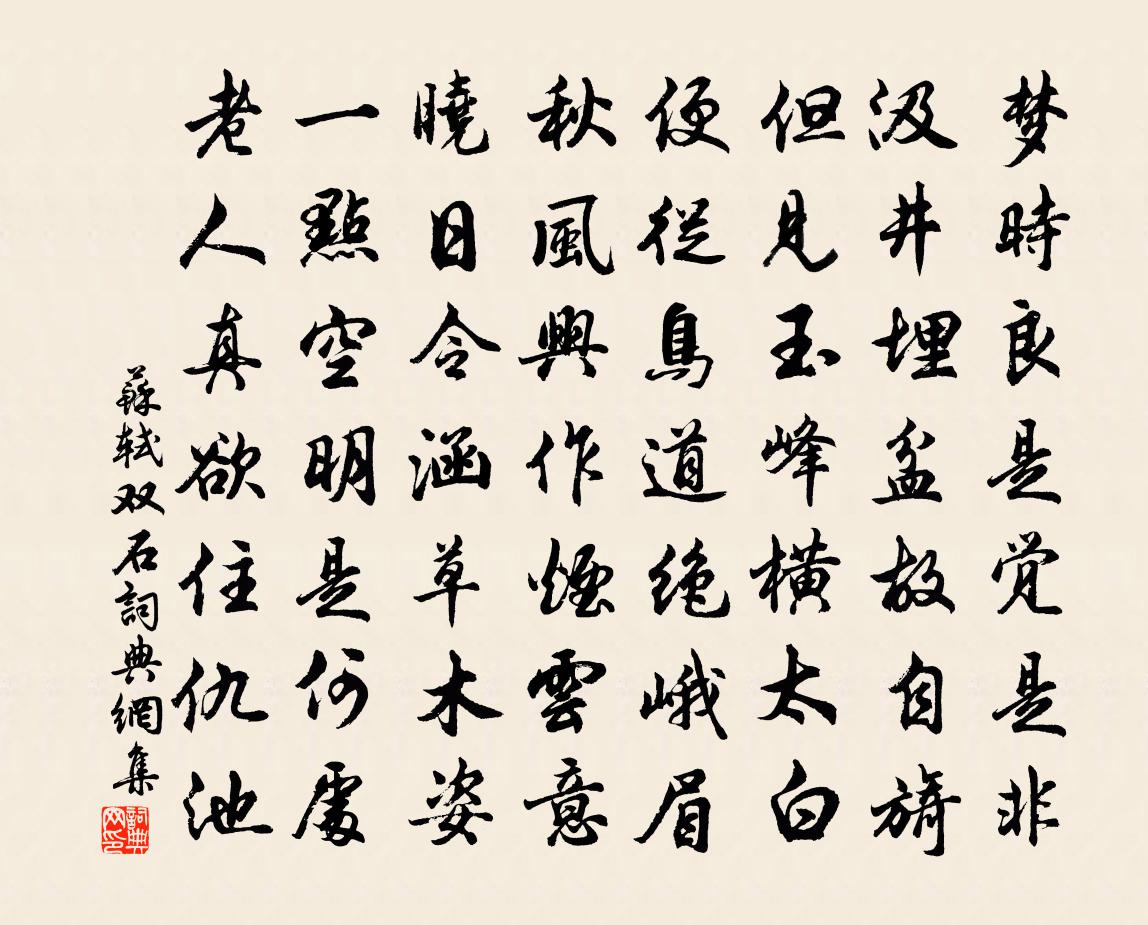 梦時良是觉是非
汲井埋盆故自旖
但見玉峰横太白
便從鳥道绝峨眉
秋風興作煙雲意
曉日令涵草木姿
一點空明是何處
老人真欲住仇池
蘇轼双石詞典網集
詞典网印